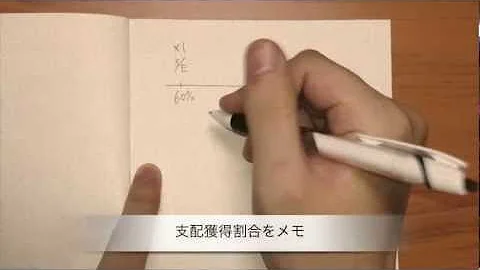 X1
3/E
60%
支配獲得割合をメモ